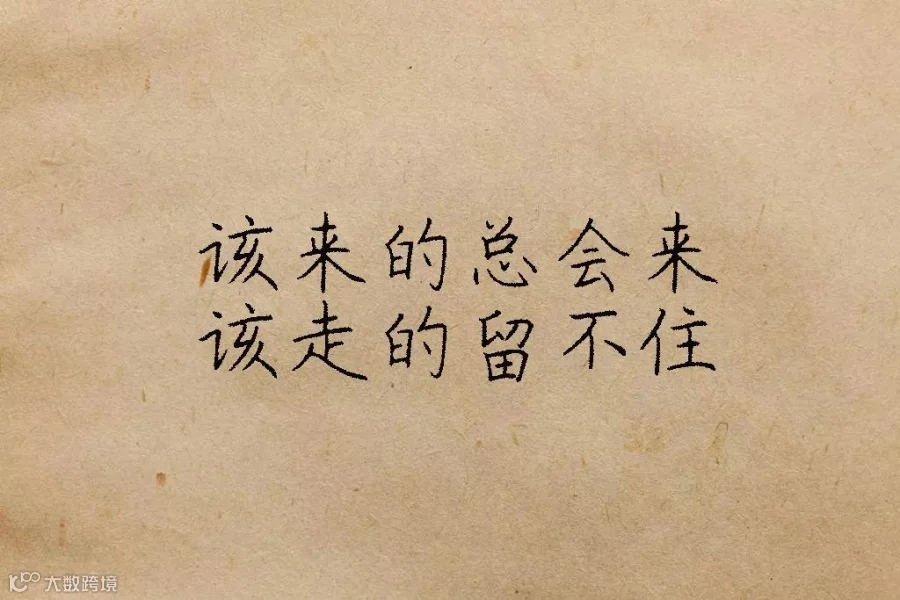 该来的总会来
该走的留不住
大数跨境